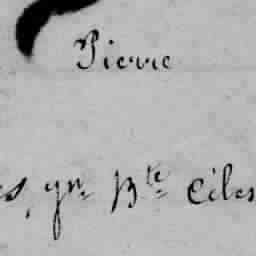 Pierre
s, qn. Bte Céles